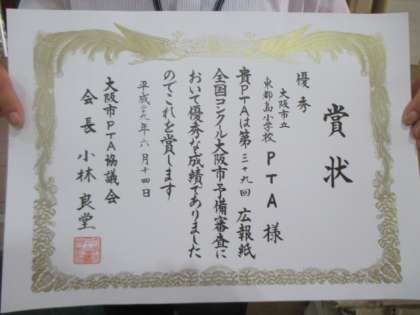 賞状
優秀
大阪市立
東都島小学校
PTA様
貴PTAは第三十九回広報紙
全国コンクール大阪市予備審査に
おいて優秀な成績でありました
のでこれを賞します
平成二十九年六月十四日
大阪市PTA協議会
会長 小林良堂